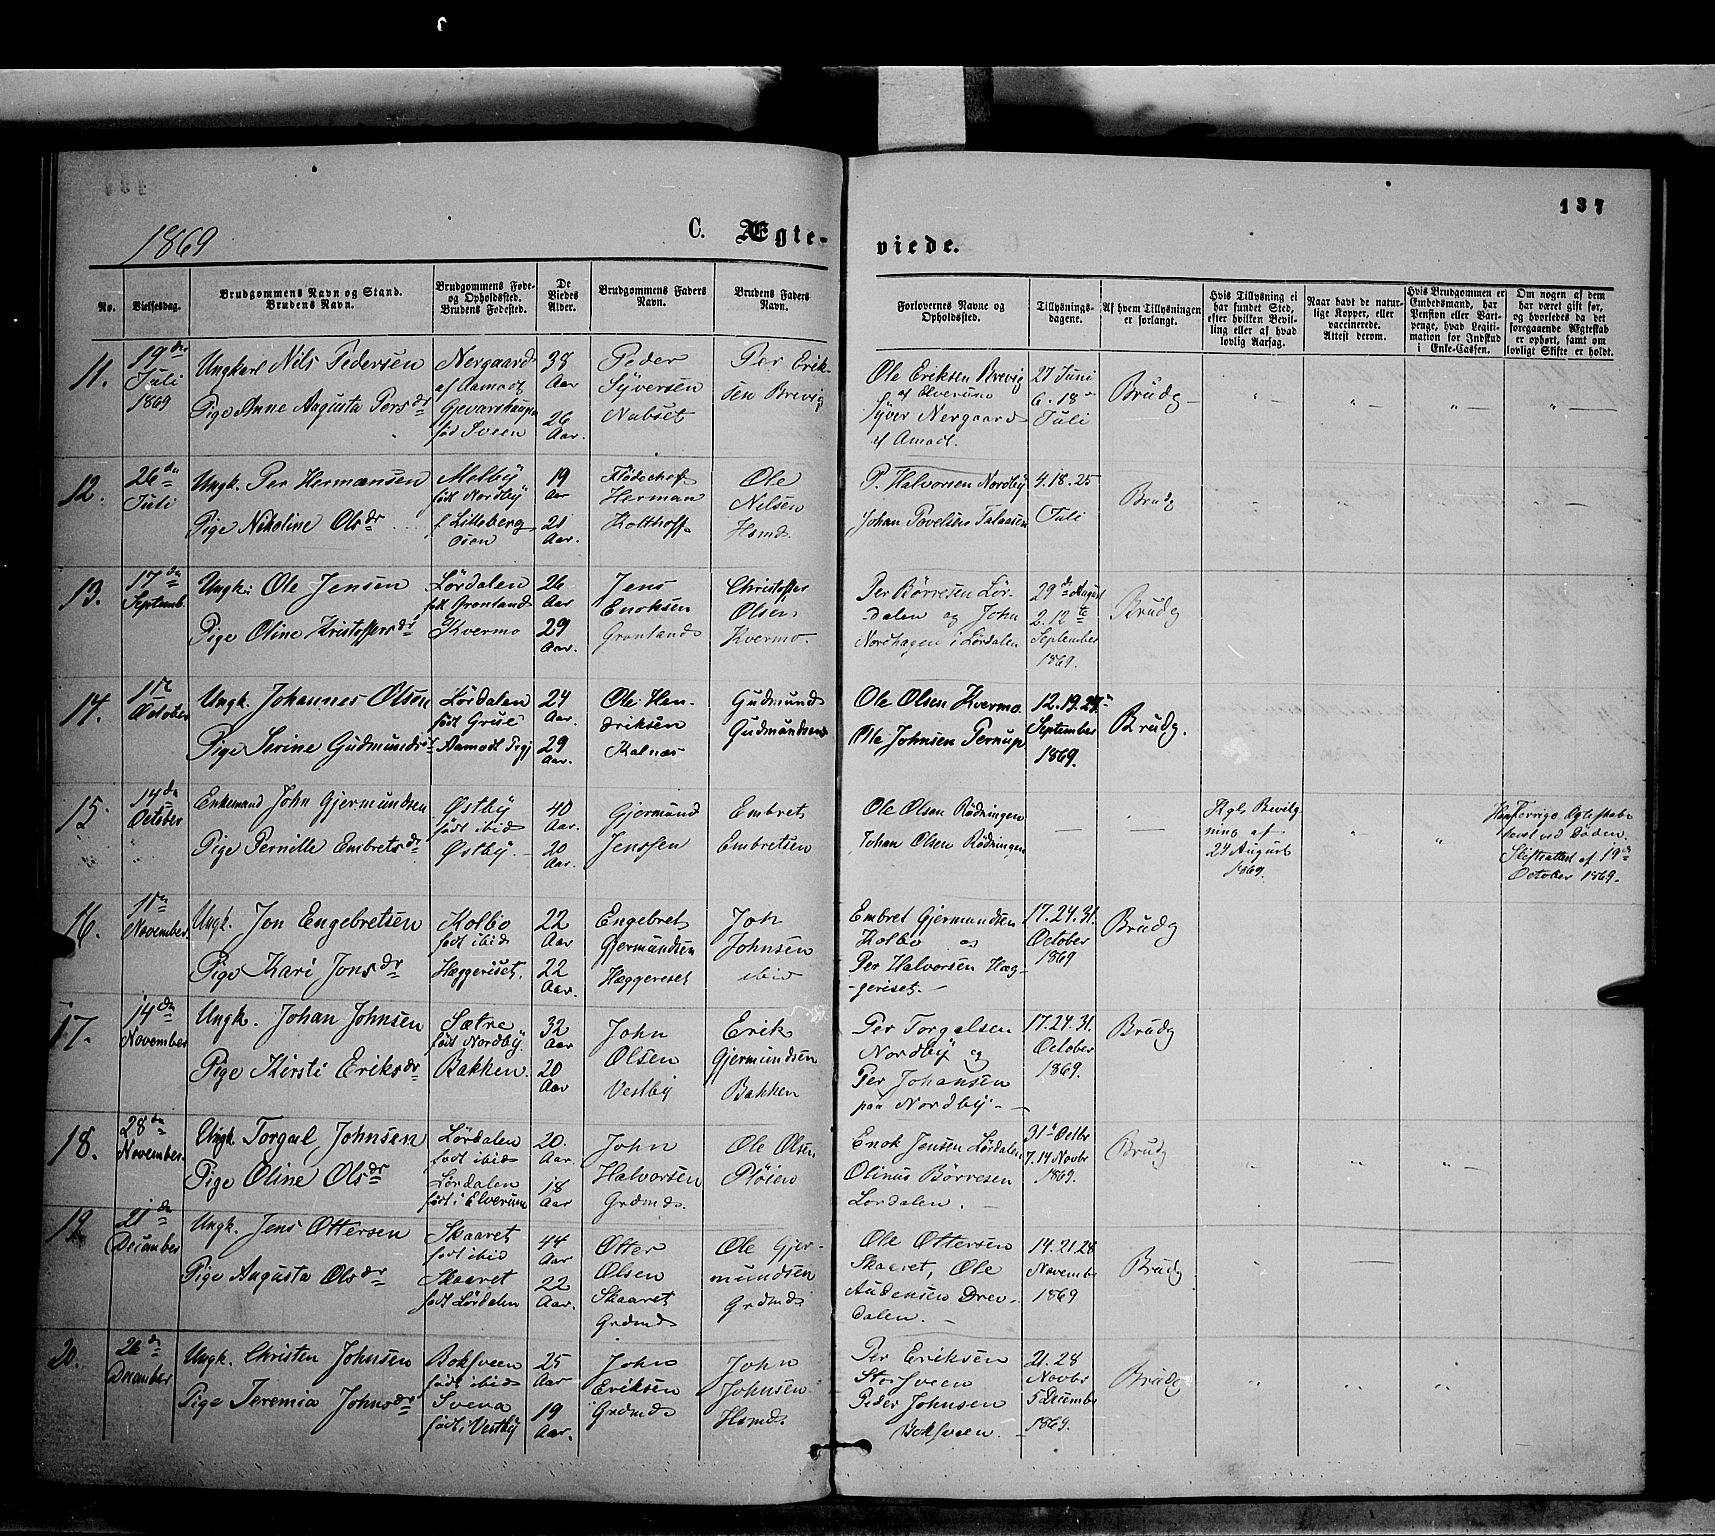 137
1869
C. Ægte-
viede.
No.
Vielsesdag.
Brudgommens Navn og Stand.
Brudens Navn.
Brudgommens Føde-
og Opholdssted.
Brudens Fødested.
De
Viedes
Alder.
Brudgommens Faders
Navn.
Brudens Faders
Navn.
Forlovernes Navne og
Opholdssted.
Tillysnings-
dagene.
Af hvem Tillysningen
er forlangt.
Hvis Tillysning ei
har fundet Sted,
efter hvilken Bevil-
ling eller af hvad
lovlig Aarsag.
Naar havt de natur-
lige Kopper, eller
vaccinerede.
Attest derom.
Hvis Brudgommen er
Embedsmand, har
Pension eller Vart-
penge, hvad Legiti-
mation for Indskud
i Enke-Cassen.
Om nogen af dem
har været gift før,
og hvorledes da det
foregaaende Ægteskab
er ophørt, samt om
lovligt Skifte er holdt.
11.
19de
Juli
1869
Ungkarl Nils Pedersen
Pige Anne Augusta Persdr
Nergaard
af Aamodt
født Sveen
38
Aar
26
Aar.
Peder
Syversen
Nabset
Per Erik-
sen Brevig
Ole Eriksen Brevig
af Elverum
Syver Nergaard
af Amodt.
27 Juni
6. 18de
Juli
Brudg
12.
26de
Juli
Ungk. Per Hermansen
Pige Nikoline Olsdr
Melby
født Nordby
f. Lilleberg
Osen
19
Aar
21
Aar.
Herman
Kolthoff
Ole
Nilsen
Hsmd.
P. Halvorsen Nordby
Johan Povelsen
4. 18. 25
Juli
Brudg
13.
17de
Septemb.
Ungk. Ole Jensen
Pige Oline Kristoffersdr
Lørdalen
født Grønland
Kvermo
26
Aar
29
Aar.
Jens
Enoksen
Grønland
Christoffer
Olsen
Kvermo.
Per Børresen Lør-
dalen og John
Nordhagen i Lørdalen
29de August
2. 12te
September
1869.
Brudg
14.
1ste
October
Ungk. Johannes Olsen
Pige Serine Gudmundsdr
Lørdalen
født Grue
Aamodt Prgj
24
Aar.
29
Aar.
Ole Hen-
driksen
Kalnæs
Gudmund
Gudmundsen
Ole Olsen Kvermo
Ole Johnsen Ternup
12. 19. 26
September
1869.
Brudg.
15.
14de
October
Enkemand John Gjermundsen
Pige Pernille Embretsdr
Østby
født ibid
Østby.
40
Aar.
20
Aar.
Gjermund
Jenssen
Embret
Embretsen
Ole Olsen Rødningen
Johan Olsen Rødningen
Kgl. Bevilg
ning af
24 August
1869.
Forrige Ægteskab
hævet ved Døden.
Skifteattest af 19de
October 1869.
16.
11te
November
Ungk. Jon Engebretsen
Pige Kari Jonsdr
Kolbo
født ibid
Hæggeriset.
22
Aar
22
Aar.
Engebret
Gjermundsen
Hæggereset
Joh
Johnsen
ibid
Embret Gjermundsen
Kolbo og
Per Halvorsen Hæg-
geriset.
17. 24. 31.
October
1869
Brudg
17.
14de
November
Ungk. Johan Johnsen
Pige Kirsti Eriksdr
Sætre
født Nordby
Bakken.
32
Aar
20
Aar
John
Olsen
Vestby
Erik
Gjermundsen
Bakken
Per Torgalsen
Nordby og
Per Johansen
paa Nordby.
17. 24. 31.
October
1869.
Brudg
18.
28de
November.
Ungk. Torgal Johnsen
Pige Oline Olsdr
Lørdalen
født ibid
Lørdalen
født i Elverum
20.
Aar.
18
Aar
John
Halvorsen
Grdmd.
Ole Olsen
Pløien
Enok Jensen Lørdalen
Olinus Børresen
Lørdalen.
31te Octbr
7. 14 Novbr
1869.
Brudg
19.
21de
December
Ungk. Jens Ottersen
Pige Augusta Olsdr
Skaaret
født ibid
Skaaret
født Lørdalen
44
Aar
22
Aar.
Otter
Olsen
Skaaret
Grdmd
Ole Gjer-
mundsen
Grdmd
Ole Ottersen
Skaaret, Ole
Audensen Drev-
dalen.
14. 21. 28
November
1869
Brudg
20.
26de
December
Ungk. Christen Johnsen
Pige Jeremia Johnsdr
Boksveen
født ibid
Svena
født i Vestby
25
Aar
19
Aar.
John
Eriksen
Grdmd
John
Johnsen
Hsmd
Per Eriksen
Storsveen
Peder Johnsen
Boksveen.
21. 28
Novbr
5 December
1869.
Brudg